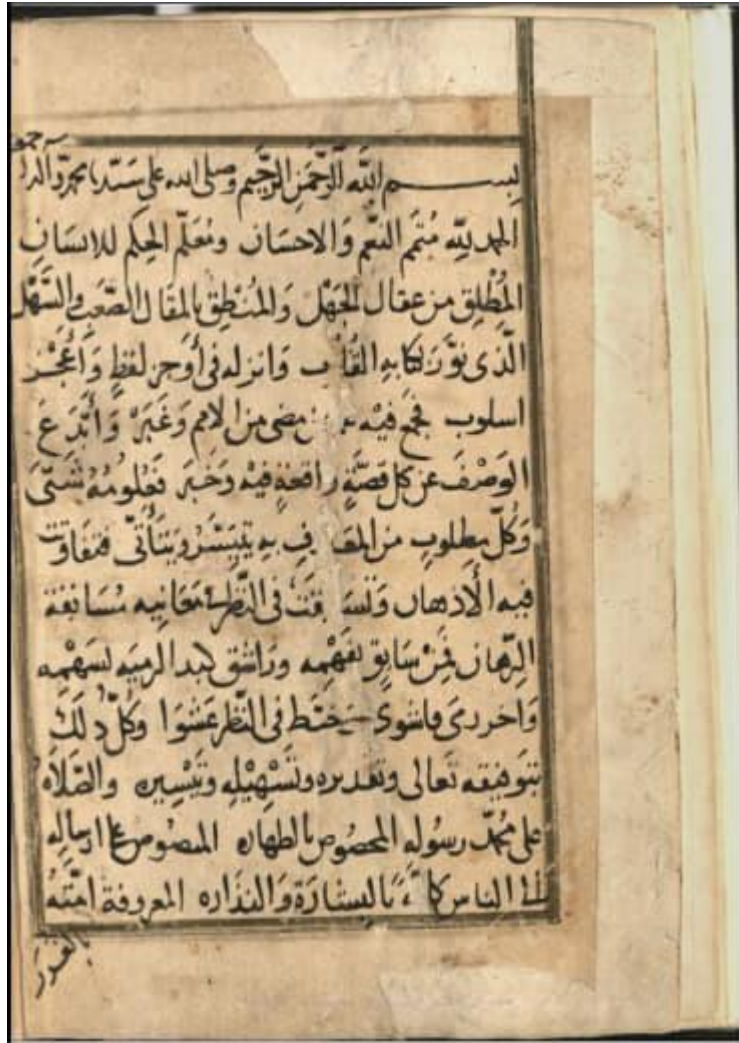 بِسم اللَّه الرَّحمَنِ الرَّحِيم وصلى الله على سَيّدنا محمد وآله
الحمد لله مُتمِّم النعَم وَالاحسَان ومُعَلِّم الحِكَم للانسَان
المُطْلِق من عقال الجَهْل وَالمُنْطِق بالمقَال الصَّعب والسَّهْل
الَّذى نوَّرَ بكتابِهِ القُلُوب وَانزله فى أَوجزِ لفظٍ وَأَعْجَز
اسلوب فجمع فيْه مضى من الامم وَغَبَرْ وَأَبْدَعَ
الوَصْفَ عن كل قصَّةٍ رافعةٍ فيْهِ وَخبر فعُلومُهُ شتَّى
وَكُلُّ مطلوبٍ من بِهِ يتيَسَّرُ ويَتأَتّى فتفاوَتت
فيه الأَذهان وَتسَابقَتْ فى النَّظر فى مَعَانِيه مُسَابقة
الرِّهان فمِنْ سَابِق بفَهْمِه ورَاشق كبد الرميّه بسَهْمِه
وَآخر رمى فاشوى خبط فى النَّظر عَشوا وكُلُّ ذلك
بتوفيقه تَعالى وتقديره وتَسْهِيْلِه وتَيْسِيره والصَّلاه
على مُحمَّد رسُولِه المخصُوص بالطهاره المنصُوص على ارساله
الى الناس كافّةً بالبشَارَة وَالنذَاره المعروفة امّتُهُ